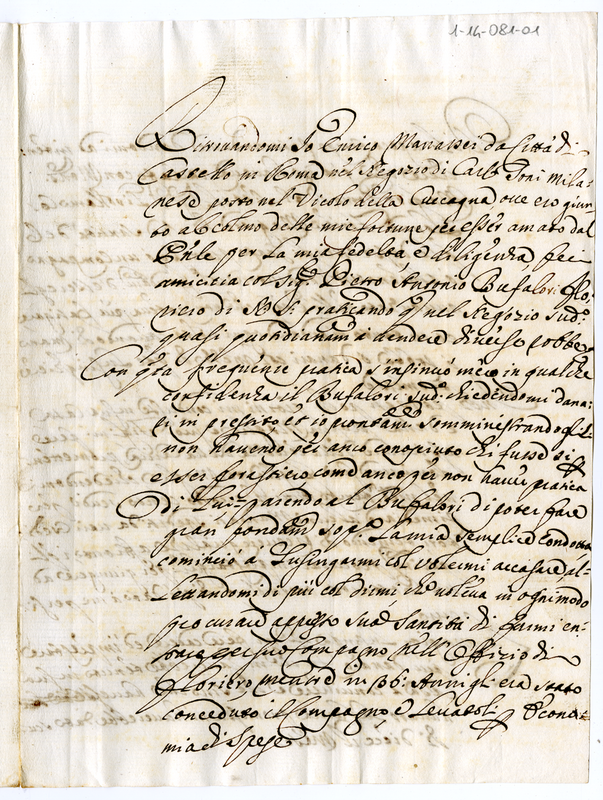 1-14-081-01
Ritrovandomi Io Enrico Manassei da Città di
Castello in Roma nel Negozio di Carlo Mila-
nese posto nel Vicolo della Cuccagna, ove ero giun-
to al colmo delle mie fortune per esser amato dal
per la mia fedeltà, e diligenza, feci
amicitia col Sigr. Pietro Antonio Bufalori flo-
riero di N. S. praticando nel Negozio sud.o
quasi quotidianam. a vendere diverse robbe
Con q.ta frequente pratica s'insinuò meco in qualche
confidenza il Bufalori sud.o chiedendomi dana-
ri in prestito et io prontam. somministrandogli
non havendo per anco conosciuto chi fusse si
esser forastiero come anco per non haver pratica
di Lui parendo al Bufalori di poter fare
gran fondam. sop.a la mia semplice condotta
cominciò à lusingarmi col volermi accasare, al-
lettandomi di più col dirmi, che voleva in ogni modo
procurare appresso Sua Santità di farmi en-
trare per suo Compagno nell'Offizio di
Floriero, mentre in era stato
conceduto il Compagno, e levatoli Econo-
mia di Spese